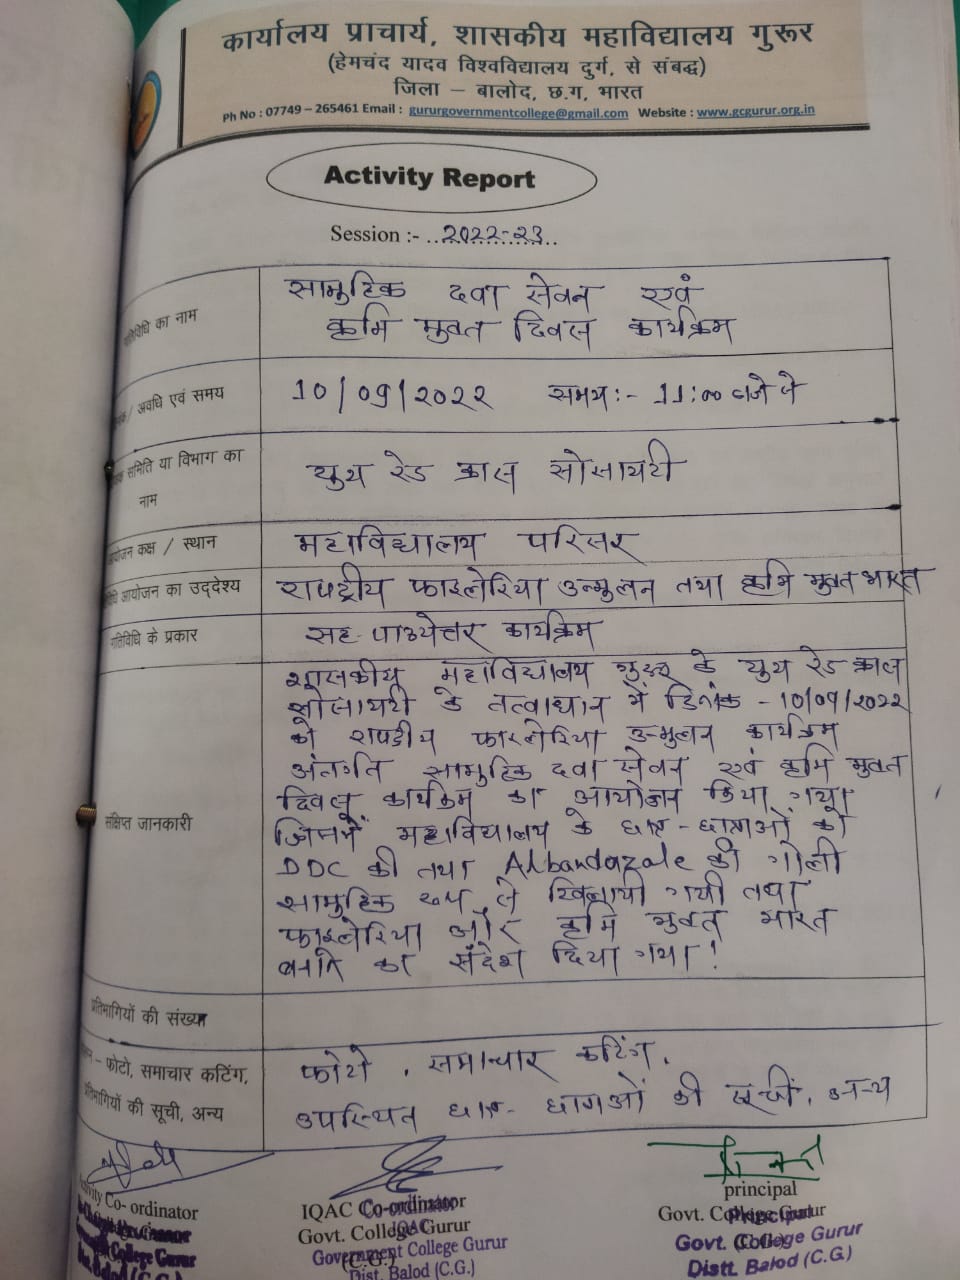 कार्यालय प्राचार्य, शासकीय महाविद्यालय गुरूर
(हेमचंद यादव विश्वविद्यालय दुर्ग, से संबद्ध)
जिला – बालोद, छ.ग, भारत
Ph No : 07749 – 265461 Email : gururgovernmentcollege@gmail.com Website : www.gcgurur.org.in
Activity Report
Session :- 2022-23
का नाम
सामुहिक दवा सेवन एवं
कृमि मुक्त दिवस कार्यक्रम
/ अवधि एवं समय
10/09/2022 समय:- 11:00 बजे से
समिति या विभाग का
नाम
युथ रेड क्रास सोसायटी
कक्ष / स्थान
महाविद्यालय परिसर
आयोजन का उद्देश्य
राष्ट्रीय फाइलेरिया उन्मुलन तथा कृमि मुक्त भारत
गतिविधि के प्रकार
सह-पाठ्येत्तर कार्यक्रम
संक्षिप्त जानकारी
शासकीय महाविद्यालय गुरूर के युथ रेड क्रास
सोसायटी के तत्वाधान में दिनांक - 10/09/2022
को राष्ट्रीय फाइलेरिया उन्मुलन कार्यक्रम
अंतर्गत सामुहिक दवा सेवन एवं कृमि मुक्त
दिवस कार्यक्रम का आयोजन किया गया।
जिसमें महाविद्यालय के छात्र-छात्राओं को
DDC की तथा Albandazole की गोली
सामुहिक रूप से खिलायी गयी तथा
फाइलेरिया और कृमि मुक्त भारत
बनाने का संदेश दिया गया!
प्रतिभागियों की संख्या
– फोटो, समाचार कटिंग,
प्रतिभागियों की सूची, अन्य
फोटो, समाचार कटिंग,
उपस्थित छात्र-छात्राओं की सूची, अन्य
Activity Co- ordinator
College Gurur
Balod (C.G.)
IQAC Co-ordinator
Govt. College Gurur
(C.G.)
Co-ordinator
IQAC
Government College Gurur
Dist. Balod (C.G.)
principal
Govt. College Gurur
(C.G.)
Principal
Govt. College Gurur
Distt. Balod (C.G.)